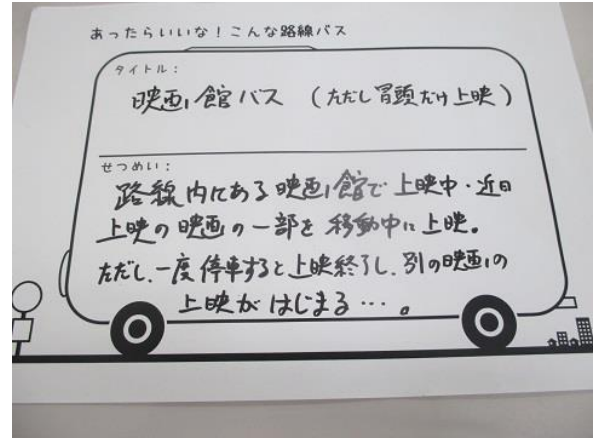 あったらいいな！こんな路線バス
タイトル：
映画館バス （ただし冒頭だけ上映）
せつめい：
路線内にある映画館で上映中・近日
上映の映画の一部を移動中に上映。
ただし、一度停車すると上映終了し、別の映画の
上映がはじまる…。